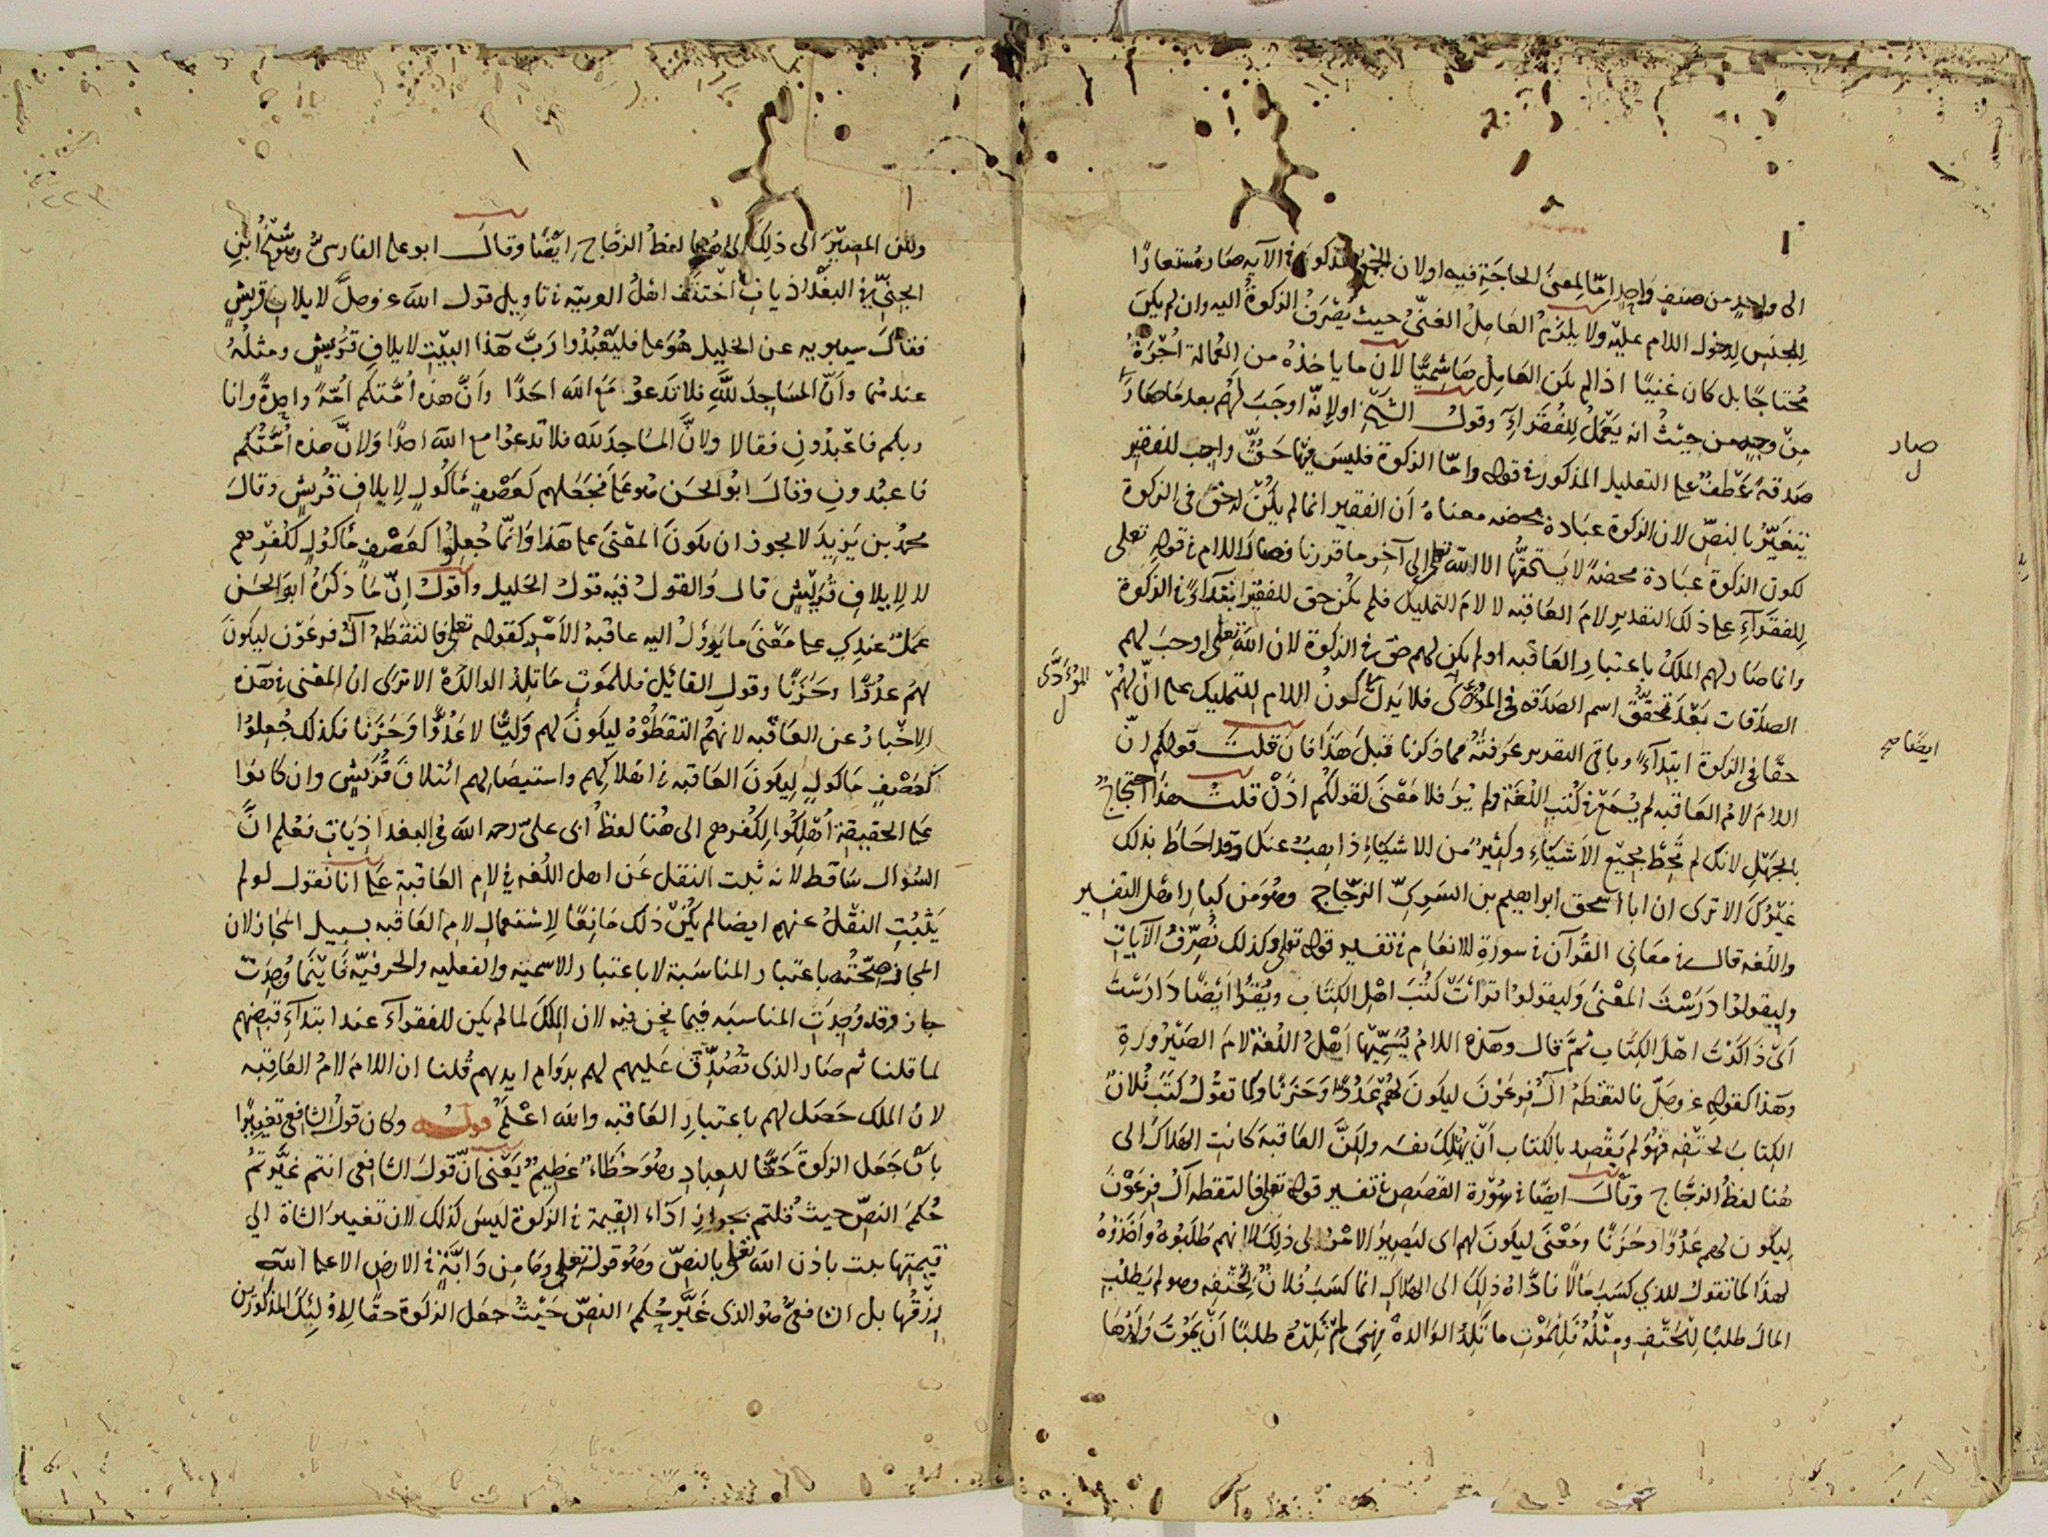 الى واحد من صنف واحد امّا لمعنى الحاجة فيه اولان الجمع المذكور في الآية صار مستعارًا
للجنس لدخول اللام عليه ولا يلزم العامل الغنيّ حيث يصرف الزكوة اليه وان لم يكن
محتاجًا بل كان غنيًا اذا لم يكن العامل هاشميًّا لان ما ياخذه من العمالة اجرة
من وجه من حيث انه يعمل للفقراء وقول الشيخ او لانه اوجب لهم بعد ما صار
صدقة عطف على التعليل المذكور في قوله وامّا الزكوة فليس فيها حقّ واجب للفقير
يتغيّر بالنصّ لان الزكوة عبادة محضه معناه ان الفقير انما لم يكن له حق في الزكوة
لكون الزكوة عبادة محضة لا يستحقّها الا الله تعلى الى آخر ما قررنا فصار اللام في قوله تعلى
للفقراء على ذلك التقدير لام العاقبه لا لام التمليك فلم يكن حق للفقير ابتداءً في الزكوة
وانما صار لهم الملك باعتبار العاقبه او لم يكن لهم حق في الزكوة لان الله تعلى اوجب لهم
الصدقات بعد تحقّق اسم الصدقه في المؤدّى فلا يدلّ كون اللام للتمليك على انّ لهم
حقّا في الزكوة ابتداءً وباقي التقدير عرفته مما ذكرنا قبل هذا فان قلت قولكم انّ
اللام لام العاقبه لم يُسمع في كتب اللغة ولم يُر فلا معنى لقولكم اذن قلت هذا احتجاج
بالجهل لانك لم تُحط بجميع الاشياء وكثير من الاشياء ذاهب عنك وقد احاط بذلك
غيرك الا ترى ان ابا اسحق ابراهيم بن السريّ الزجّاج وهو من كبار اهل التفسير
واللغه قال في معاني القرآن في سورة الانعام في تفسير قوله تعلى وكذلك نصرّف الآيات
وليقولوا درست المعنى وليقولوا قرأت كتب اهل الكتاب ويُقرأ ايضًا دارست
اي ذاكرت اهل الكتاب ثمّ قال وهذه اللام يُسمّيها اهل اللغة لام الصيرورة
وهذا كقوله عز وجلّ فالتقطه آل فرعون ليكون لهم عدوًّا وحزنًا وكما تقول كتب فلان
الكتاب لحتفه فهو لم يقصد بالكتاب ان يُهلك نفسه ولكنّ العاقبة كانت الهلاك الى
هنا لفظ الزجّاج وقال ايضًا في سورة القصص في تفسير قوله تعلى فالتقطه آل فرعون
ليكون لهم عدوًّا وحزنًا ومعنى ليكون لهم اي ليصير الامر الى ذلك لا انهم طلبوه واخذوه
لهذا كما تقول للذي كسب مالاً فادّاه ذلك الى الهلاك انما كسب فلان لحتفه وهو لم يطلب
المال طلبًا للحتف ومثله فللموت ما تلد الوالدة فهي لم تلده طلبًا ان يموت ولدها
صار
ل
المؤدّى
ل
ايضًا صح
ولكن المصير الى ذلك الى هنا لفظ الزجّاج ايضًا وقال ابو علي الفارسي وهو شيخ ابن
الجنّي في البغداذيات اختلف اهل العربية في تاويل قول الله عز وجلّ لايلاف قريش
فقال سيبويه عن الخليل هو على فليعبدوا ربّ هذا البيت لايلاف قريش ومثله
عندهما وانّ المساجد لله فلا تدعوا مع الله احدًا وانّ هذه امّتكم امّة واحدةً وانا
ربكم فاعبدون فقالا ولانّ المساجد لله فلا تدعوا مع الله احدًا ولانّ هذه امّتكم
فاعبدون وقال ابو الحسن هو على فجعلهم كعصف مأكول لايلاف قريش وقال
محمد بن يزيد لا يجوز ان يكون المعنى على هذا وانّما جُعلوا كعصف مأكول لكفرهم
لا لايلاف قريش قال والقول فيه قول الخليل واقول انّ ما ذكره ابو الحسن
عمل عندي على معنى ما يؤول اليه عاقبة الامر كقوله تعلى فالتقطه آل فرعون ليكون
لهم عدوًّا وحزنًا وقول القائل فللموت ما تلد الوالدة الا ترى ان المعنى في هذه
الاخبار عن العاقبه لانهم التقطوه ليكون لهم وليًّا لا عدوًّا وحزنًا فكذلك جُعلوا
كعصف ماكول ليكون العاقبه في اهلاكهم واستيصالهم ائتلاف قريش وان كانوا
على الحقيقة اُهلكوا لكفرهم الى هنا لفظ ابي عليّ رحمه الله في البغداذيات فعُلم انّ
السؤال ساقط لانه ثبت النقل عن اهل اللغه في لام العاقبة على انا نقول لو لم
يثبت النقل عنهم ايضا لم يكن ذلك مانعًا لاستعمال لام العاقبه بسبيل المجاز لان
المجاز صحّته باعتبار المناسبة لا باعتبار الاسمية والفعليه والحرفيّه فاينما وُجدت
جاز وقد وُجدت المناسبه فيما نحن فيه لان الملك لما لم يكن للفقراء عند ابتداء قبضهم
لما قلنا ثم صار الذي تُصدّق عليهم لهم بدوام ايديهم قلنا ان اللام لام العاقبه
لان الملك حصل لهم باعتبار العاقبه والله اعلم قوله وكان قول الشافعي تغييرًا
بان جعل الزكوة حقًّا للعباد وهو خطاء عظيم يعني انّ قول الشافعي انتم غيّرتم
حكم النصّ حيث قلتم بجواز اداء القيمة في الزكوة ليس كذلك لان تغيير الشاة الى
قيمتها بت باذن الله تعلى بالنصّ وهو قوله تعلى وما من دابّة في الارض الا على الله
رزقها بل الشافعيّ هو الذي غيّر حكم النصّ حيث جعل الزكوة حقًّا لاولئك المذكورين